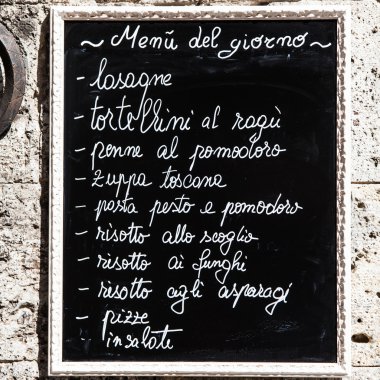 ~ Menū del giorno ~
- lasagne
- tortellini al ragù
- penne al pomodoro
- zuppa toscana
- pasta pesto e pomodoro
- risotto allo scoglio
- risotto ai funghi
- risotto agli asparagi
- pizze
- insalate